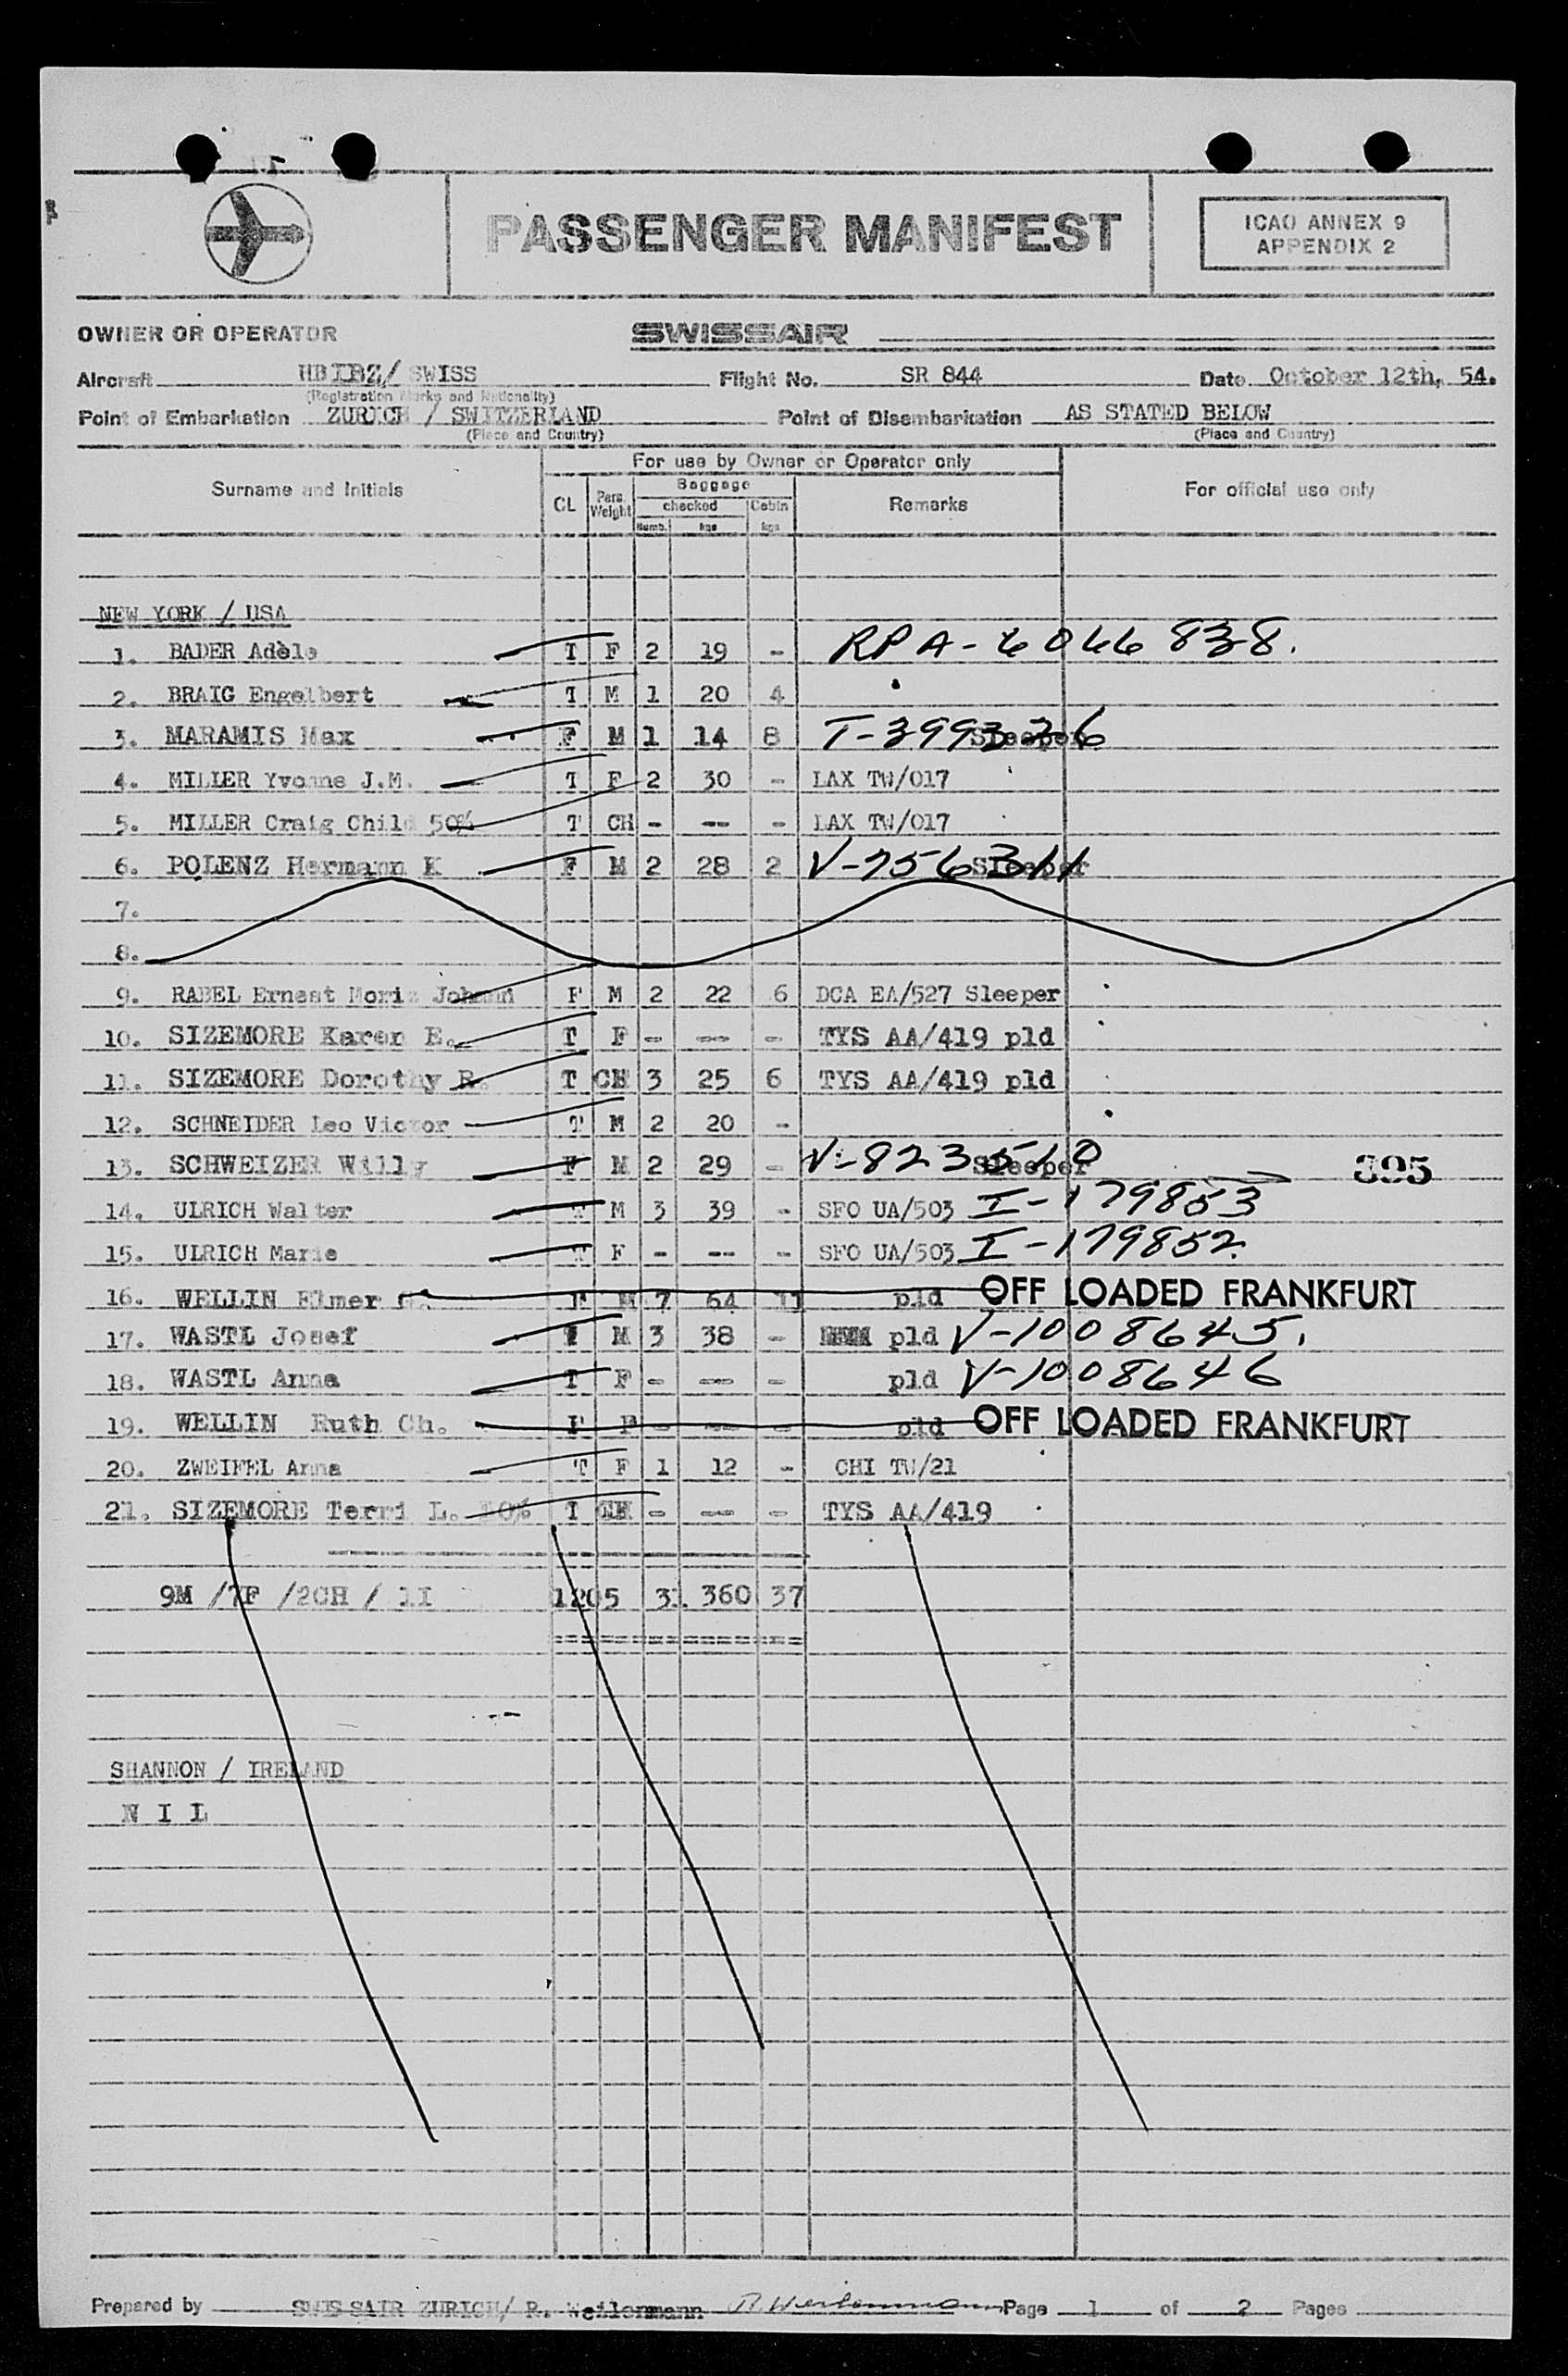 PASSENGER MANIFEST
ICAO ANNEX 9
APPENDIX 2
OWNER OR OPERATOR SWISSAIR
Aircraft HBIBZ/ SWISS Flight No. SR 844 Date October 12th, 54.
(Registration Marks and Nationality)
Point of Embarkation ZURICH / SWITZERLAND Point of Disembarkation AS STATED BELOW
(Place and Country) (Place and Country)
For use by Owner or Operator only
Surname and Initials CL Pers. Weight Baggage checked Numb. kgs Cabin kgs Remarks For official use only
NEW YORK / USA
1. BADER Adèle T F 2 19 - RPA-6066838.
2. BRAIG Engelbert T M 1 20 4
3. MARAMIS Max F M 1 14 8 Sleeper T-399326
4. MILLER Yvonne J.M. T F 2 30 - LAX TW/017
5. MILLER Craig Child 50% T CH - -- - LAX TW/017
6. POLENZ Hermann K F M 2 28 2 Sleeper V-756311
7.
8.
9. RABEL Ernest Moriz Johann F M 2 22 6 DCA EA/527 Sleeper
10. SIZEMORE Karen E. T F - -- - TYS AA/419 pld
11. SIZEMORE Dorothy R. T CH 3 25 6 TYS AA/419 pld
12. SCHNEIDER Leo Victor T M 2 20 -
13. SCHWEIZER Willy F M 2 29 - Sleeper V-823510 395
14. ULRICH Walter T M 3 39 - SFO UA/503 I-179853
15. ULRICH Marie T F - -- - SFO UA/503 I-179852
16. WELLIN Elmer G. F M 7 64 11 pld OFF LOADED FRANKFURT
17. WASTL Josef T M 3 38 - pld V-1008645.
18. WASTL Anna T F - -- - pld V-1008646
19. WELLIN Ruth Ch. F F - -- - pld OFF LOADED FRANKFURT
20. ZWEIFEL Anna T F 1 12 - CHI TW/21
21. SIZEMORE Terri L. 10% T CH - -- - TYS AA/419
9M /7F /2CH / 1I 1205 31 360 37
SHANNON / IRELAND
N I L
Prepared by SWISSAIR ZURICH/ R. Weilenmann R. Weilenmann Page 1 of 2 Pages